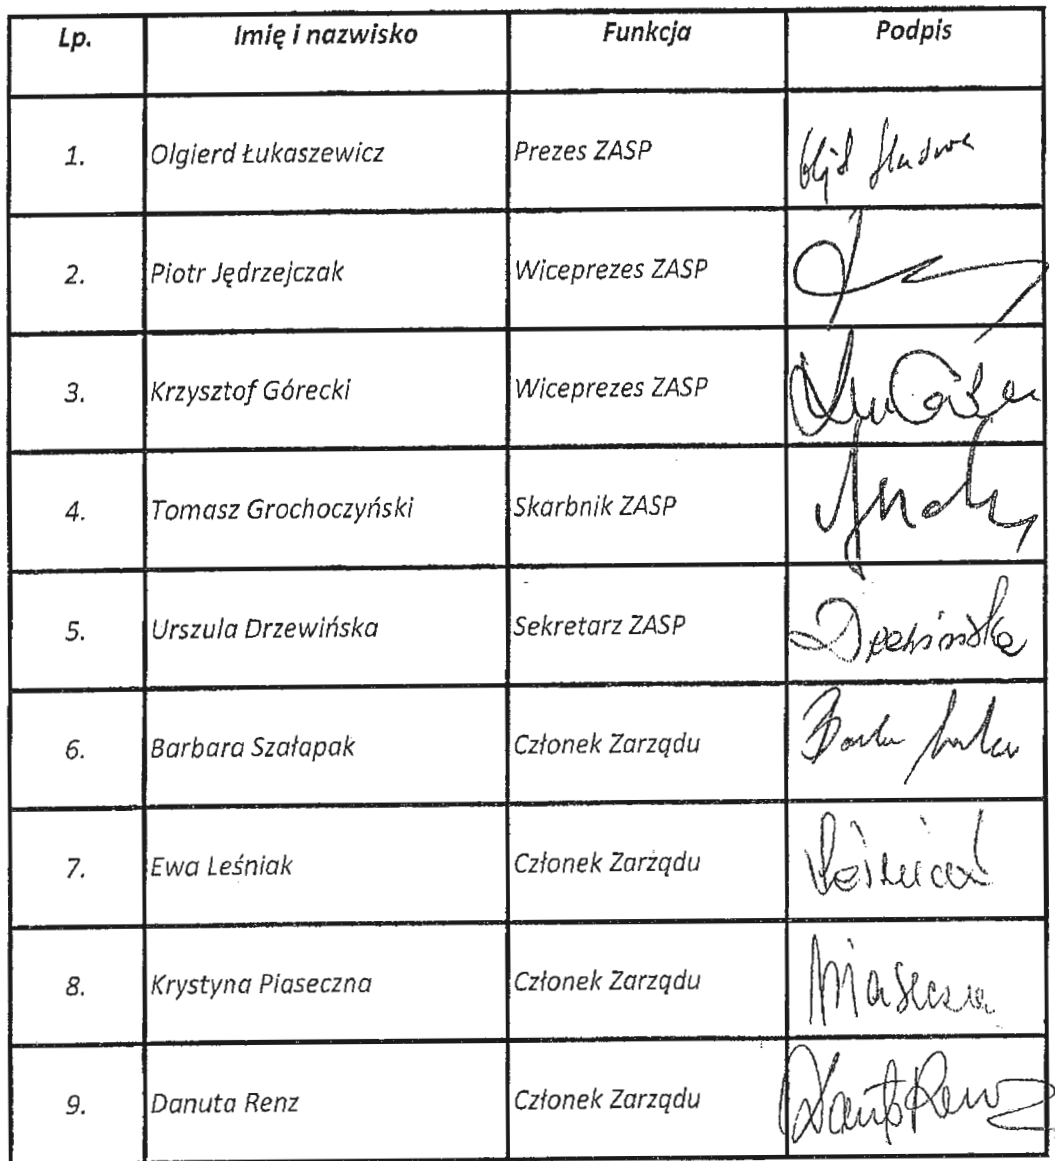 Lp. Imię i nazwisko Funkcja Podpis
1. Olgierd Łukaszewicz Prezes ZASP
2. Piotr Jędrzejczak Wiceprezes ZASP
3. Krzysztof Górecki Wiceprezes ZASP
4. Tomasz Grochoczyński Skarbnik ZASP
5. Urszula Drzewińska Sekretarz ZASP
6. Barbara Szałapak Członek Zarządu
7. Ewa Leśniak Członek Zarządu
8. Krystyna Piaseczna Członek Zarządu
9. Danuta Renz Członek Zarządu